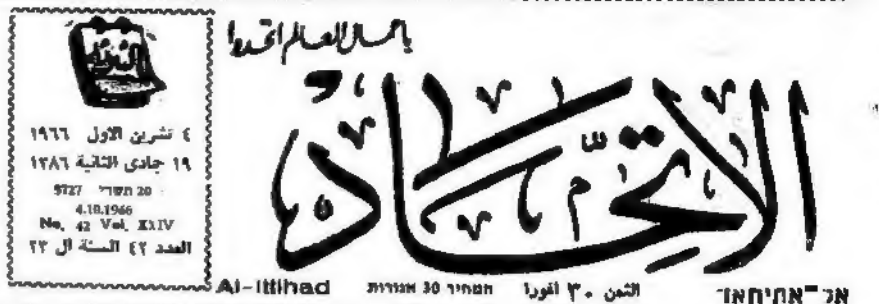 يا عمال العالم اتحدوا
الاتحاد
الثلاثاء
٤ تشرين الاول ١٩٦٦
١٩ جمادى الثانية ١٣٨٦
20 תשרי 5727
4.10.1966
No. 42 Vol. XXIV
العدد ٤٢ السنة ال ٢٣
Al-Ittihad המחיר 30 אגורות الثمن ٣٠ اغورا אל-אתיחאד